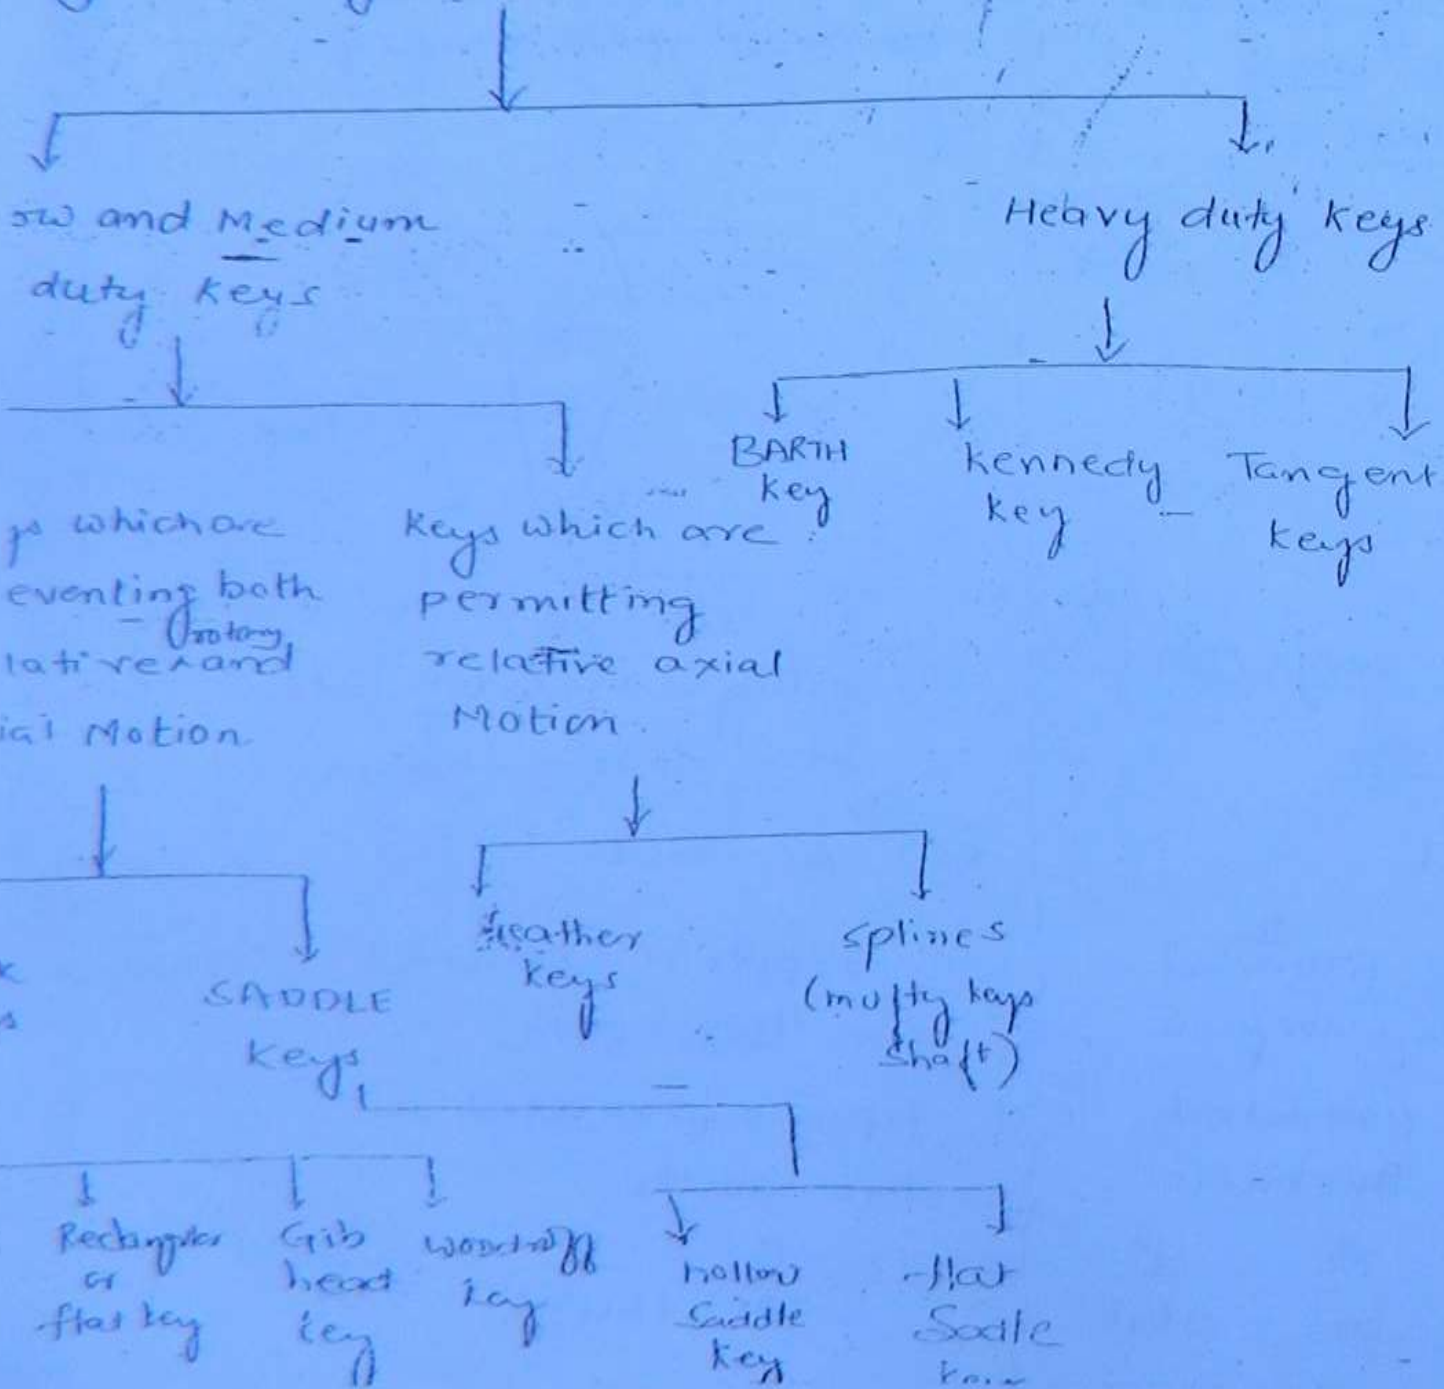 ow and Medium
duty keys
Heavy duty keys
BARTH
key
kennedy
key
Tangent
keys
ys which are
eventing both
rotary
lative ^ and
ial Motion
keys which are
permitting
relative axial
Motion
SADDLE
keys
feather
keys
splines
(multy keys
shaft)
Rectangular
or
flat key
Gib
head
key
woodruff
key
hollow
Saddle
key
flat
Sadle